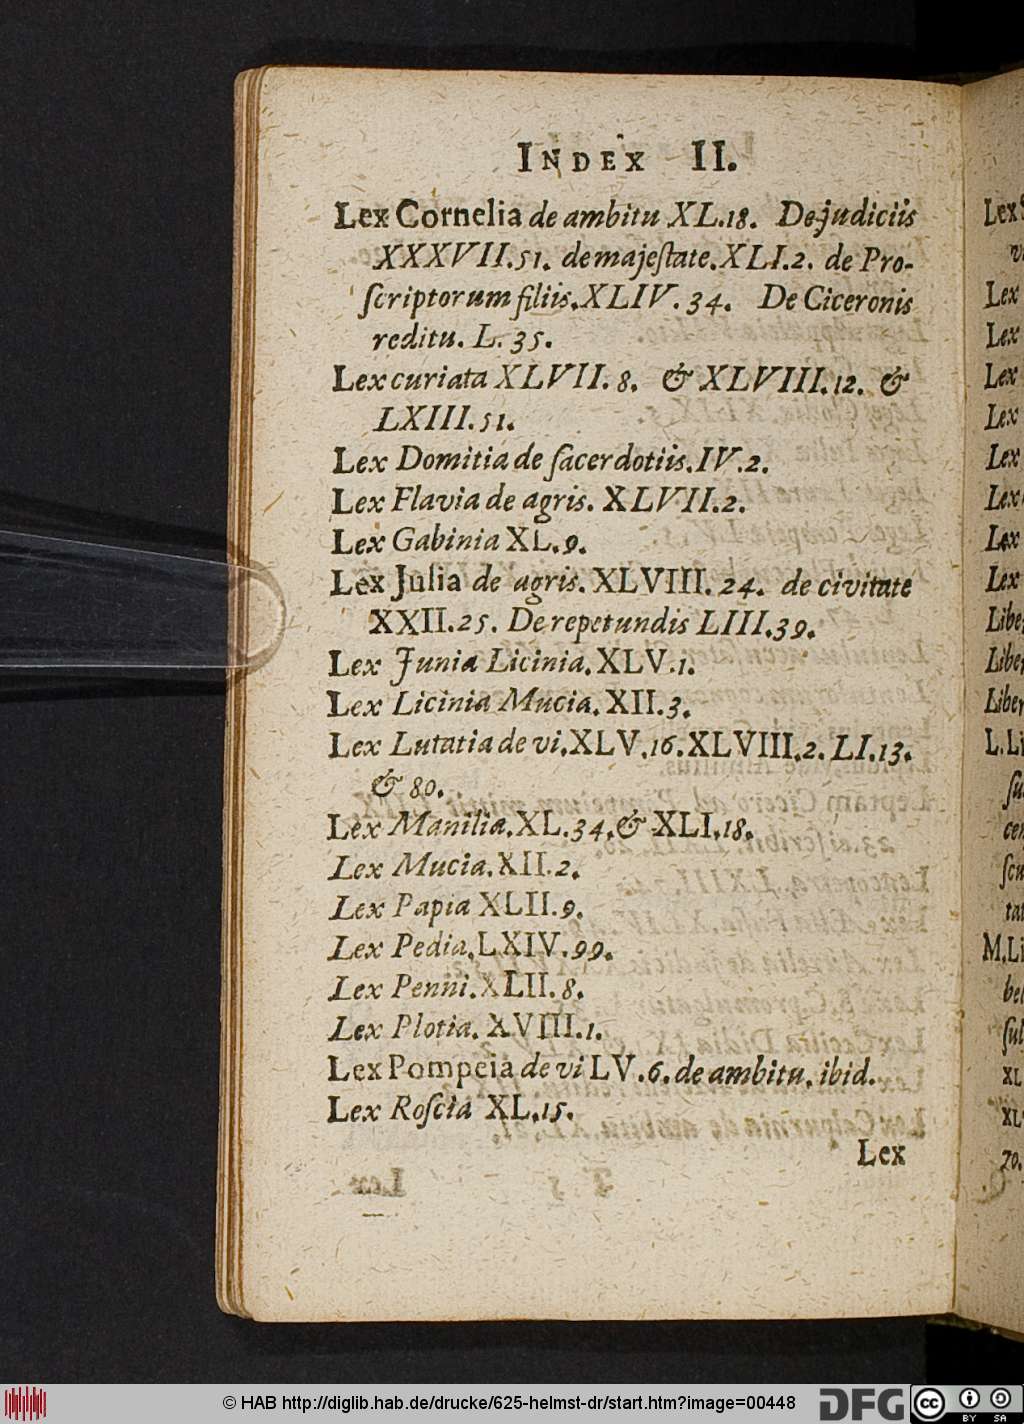 INDEX II.
Lex Cornelia de ambitu XL.18. De judiciis
XXXVII.51. de majeſtate.XLI.2. de Pro-
ſcriptorum filiis.XLIV.34. De Ciceronis
reditu. L.35.
Lex curiata XLVII.8. & XLVIII.12. &
LXIII.51.
Lex Domitia de ſacerdotiis.IV.2.
Lex Flavia de agris. XLVII.2.
Lex Gabinia XL.9.
Lex Julia de agris. XLVIII.24. de civitate
XXII.25. De repetundis LIII.39.
Lex Junia Licinia. XLV.1.
Lex Licinia Mucia. XII.3.
Lex Lutatia de vi.XLV.16.XLVIII.2. LI.13.
& 80.
Lex Manilia.XL.34.& XLI.18.
Lex Mucia.XII.2.
Lex Papia XLII.9.
Lex Pedia.LXIV.99.
Lex Penni.XLII.8.
Lex Plotia. XVIII.1.
Lex Pompeia de vi LV.6.de ambitu. ibid.
Lex Roſcia XL.15.
Lex
Lex
Lex
Lex
Lex
Lex
Lex
Lex
Lex
Lex
M.Li
70.
© HAB http://diglib.hab.de/drucke/625-helmst-dr/start.htm?image=00448
DFG
cc
BY SA